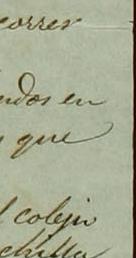 correr
ndos en
que
l colejio
chilla